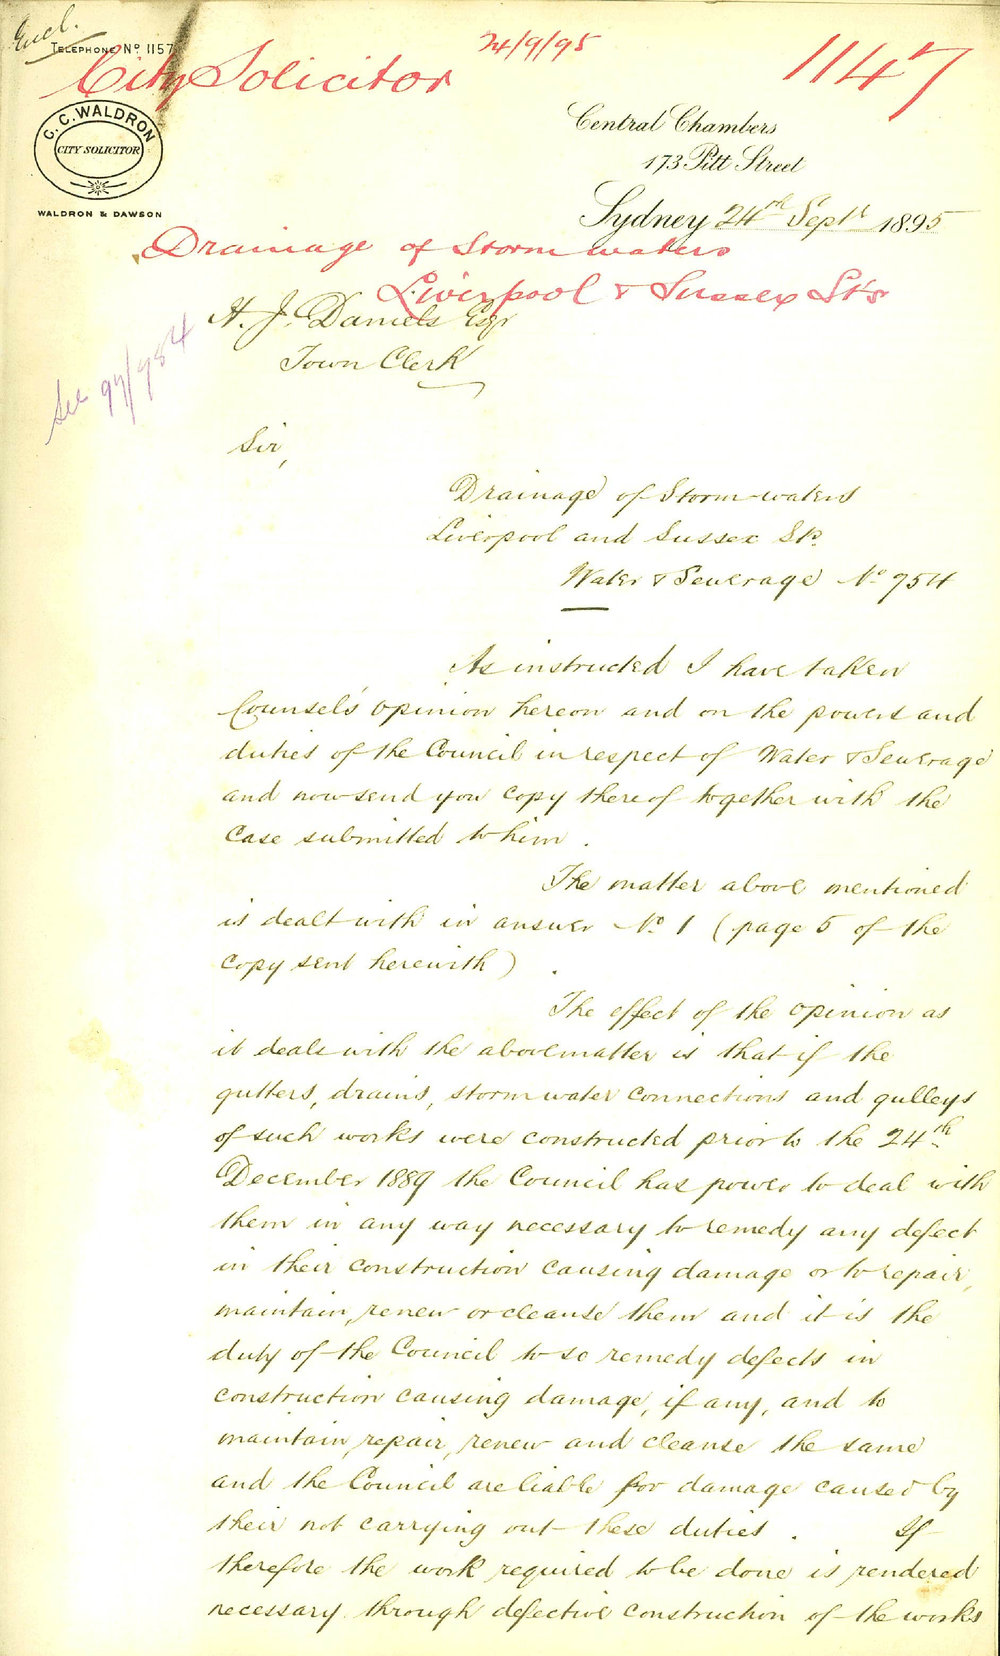 Encl.
TELEPHONE No 1157
City Solicitor
24/9/95
1147
C. C. WALDRON
CITY SOLICITOR
WALDRON & DAWSON
Central Chambers
173 Pitt Street
Sydney 24th Sept 1895
Drainage of Storm waters
Liverpool & Sussex Sts
H. J. Daniels Esqr
Town Clerk
See 97/954
Sir,
Drainage of Storm-waters
Liverpool and Sussex Sts.
Water & Sewerage No 954
As instructed I have taken
Counsel's opinion hereon and on the powers and
duties of the Council in respect of Water & Sewerage
and now send you copy thereof together with the
Case submitted to him.
The matter above mentioned
is dealt with in answer No 1 (page 5 of the
copy sent herewith).
The effect of the opinion as
it deals with the above matter is that if the
gutters, drains, storm water connections and gulleys
of such works were constructed prior to the 24th
December 1889 the Council has power to deal with
them in any way necessary to remedy any defect
in their construction causing damage or to repair,
maintain, renew or cleanse them and it is the
duty of the Council to so remedy defects in
construction causing damage, if any, and to
maintain, repair, renew and cleanse the same
and the Council are liable for damage caused by
their not carrying out these duties. If
therefore the work required to be done is rendered
necessary through defective construction of the works